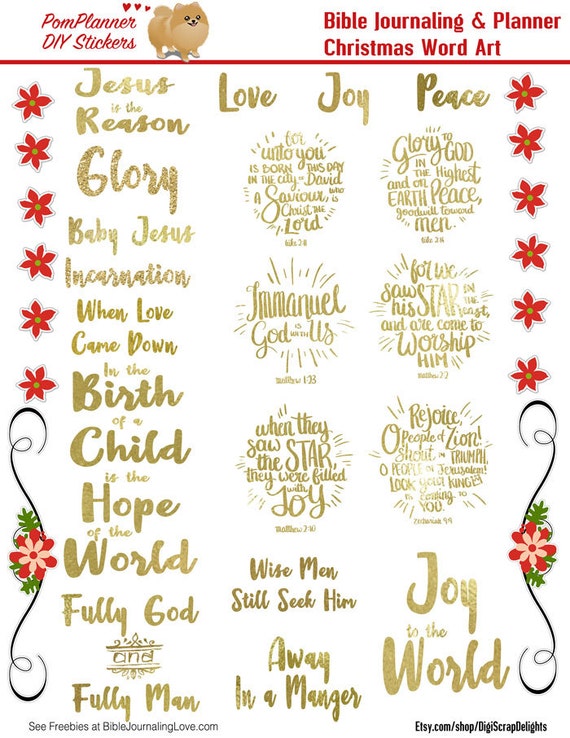 PomPlanner
DIY Stickers
Bible Journaling & Planner
Christmas Word Art
Jesus
is the
Reason
Love Joy Peace
Glory
Baby Jesus
Incarnation
When Love
Came Down
In the
Birth
of a
Child
is the
Hope
of the
World
Fully God
and
Fully Man
for
unto you
is born this day
in the city of David
a Saviour, who
is Christ the
Lord
luke 2:11
Glory to
God
in the Highest
and on
Earth Peace,
goodwill toward
men.
luke 2:14
Immanuel
is
God with Us
matthew 1:23
for we
saw
his STAR in the
east,
and are come to
Worship
Him
matthew 2:2
when they
saw
the STAR,
they were filled
with
Joy
matthew 2:10
Rejoice,
O People of Zion!
Shout in Triumph,
O People of Jerusalem!
Look your King
is coming to
you.
Zechariah 9:9
Wise Men
Still Seek Him
Away
In a Manger
Joy
to the
World
See Freebies at BibleJournalingLove.com
Etsy.com/shop/DigiScrapDelights